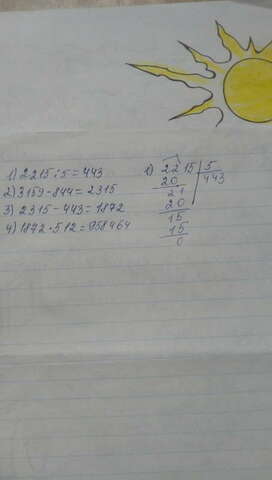 1) 2215 : 5 = 443
2) 3159 - 844 = 2315
3) 2315 - 443 = 1872
4) 1872 · 512 = 958464
1) 2215 | 5
20 443
21
20
15
15
0